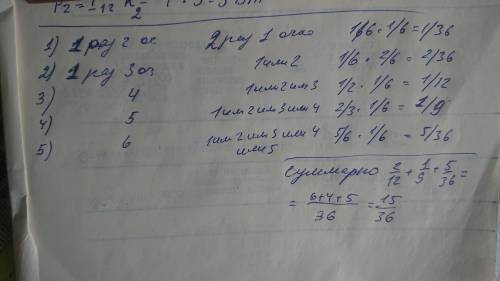 1) 1 раз 2 ос 2 раз 1 очко 1/6 · 1/6 = 1/36
2) 1 раз 3 оз 1 или 2 1/6 · 2/6 = 2/36
3) 4 1 или 2 или 3 1/2 · 1/6 = 1/12
4) 5 1 или 2 или 3 или 4 2/3 · 1/6 = 1/9
5) 6 1 или 2 или 3 или 4 5/6 · 1/6 = 5/36
или 5
Суммарно 2/12 + 1/9 + 5/36 =
= 6+4+5/36 = 15/36